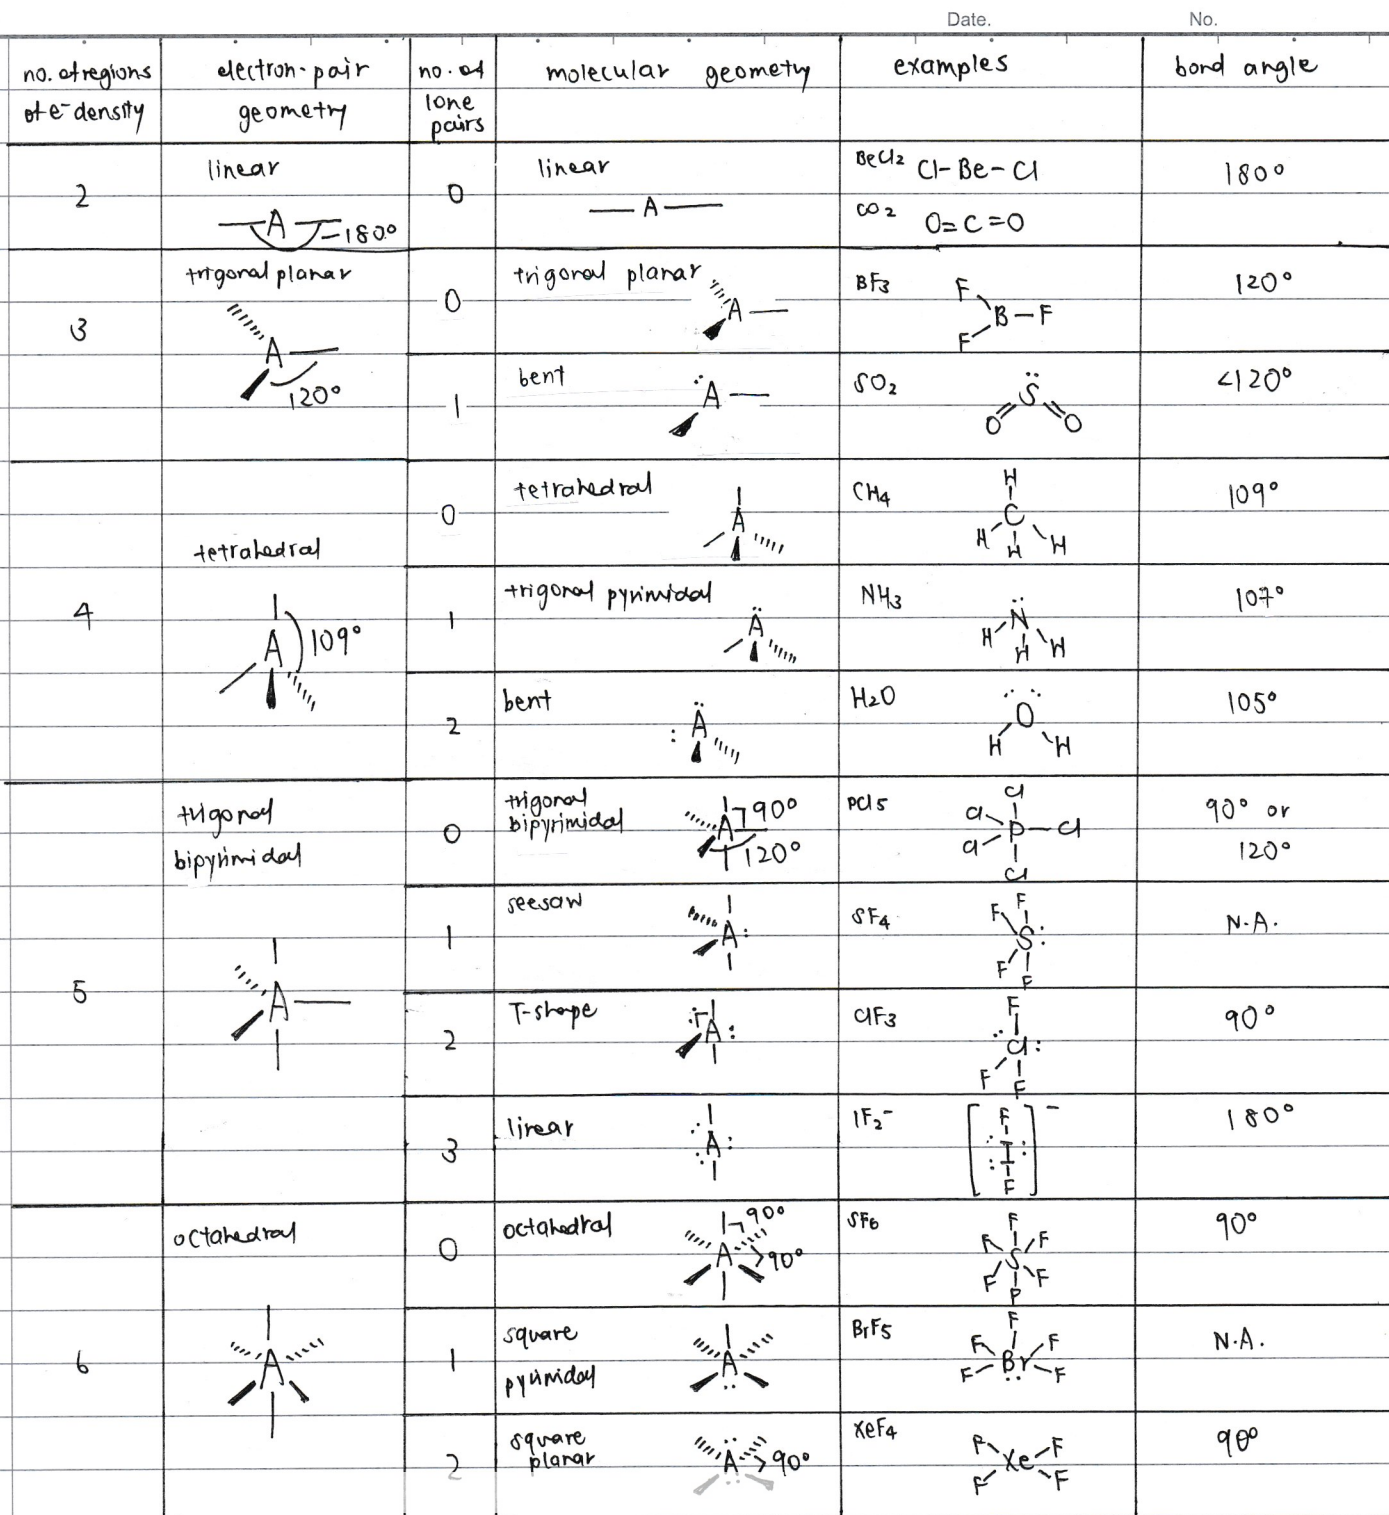 Date. No.
no. of regions of e⁻ density electron-pair geometry no. of lone pairs molecular geometry examples bond angle
2
linear
A
=180°
0
linear
A
BeCl2 Cl-Be-Cl
CO2 O=C=O
180°
3
trigonal planar
A
120°
0
trigonal planar
A
BF3
F
B-F
F
120°
1
bent
A
SO2
S
O O
<120°
4
tetrahedral
A
109°
0
tetrahedral
A
CH4
H
C
H H H
109°
1
trigonal pyrimidal
A
NH3
N
H H H
107°
2
bent
A
H2O
O
H H
105°
5
trigonal
bipyrimidal
A
0
trigonal
bipyrimidal
A
90°
120°
PCl5
Cl
Cl
P-Cl
Cl
Cl
90° or
120°
1
seesaw
A:
SF4
F
F
S:
F
F
N.A.
2
T-shape
A:
ClF3
F
Cl:
F
F
90°
3
linear
A:
IF2⁻
[F
I
F]⁻
180°
6
octahedral
A
0
octahedral
A
90°
90°
SF6
F
F F
S
F F
F
90°
1
square
pyrimidal
A
BrF5
F
F F
Br
F F
N.A.
2
square
planar
A
90°
XeF4
F F
Xe
F F
90°